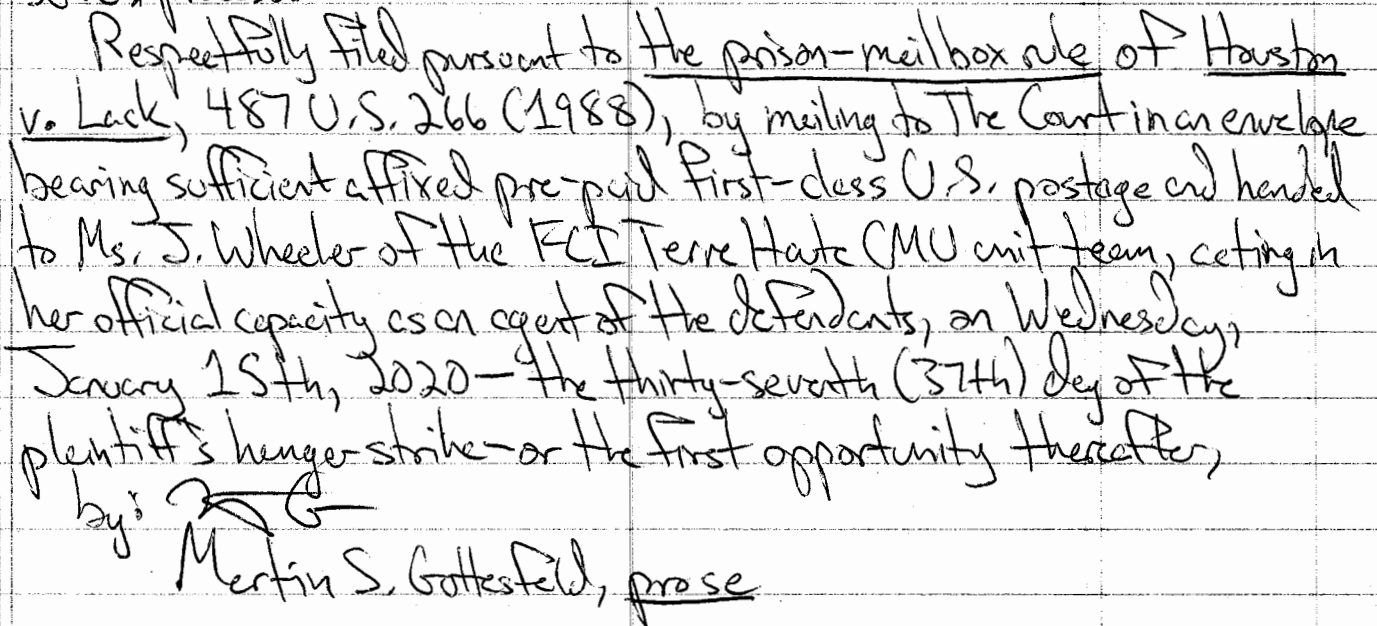 Respectfully filed pursuant to the prison-mailbox rule of Houston
v. Lack, 487 U.S. 266 (1988), by mailing to The Court in an envelope
bearing sufficient affixed pre-paid first-class U.S. postage and handed
to Ms. J. Wheeler of the FCI Terre Haute CMU unit team, acting in
her official capacity as an agent of the defendants, on Wednesday,
January 15th, 2020 — the thirty-seventh (37th) day of the
plaintiff's hunger strike — or the first opportunity thereafter,
by:
Martin S. Gottesfeld, pro se